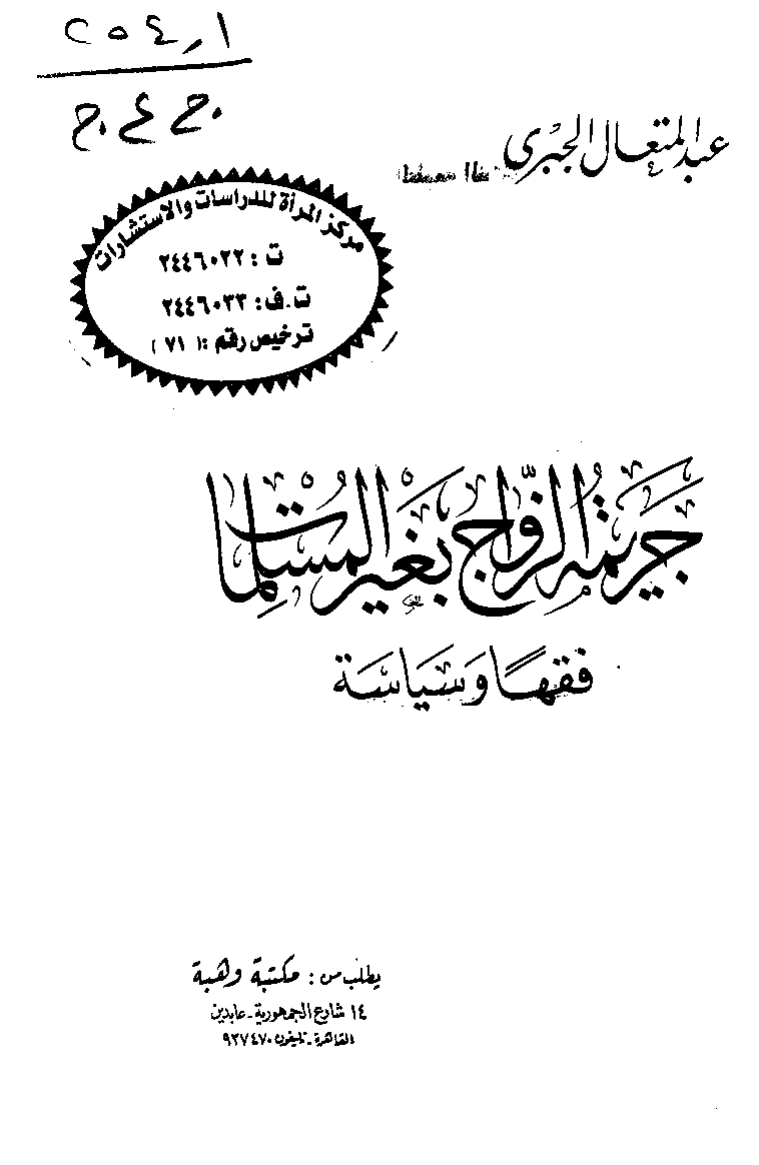 ٢٥٤,١
ج.ع.ج
عبد المتعال الجبرى
مركز المرأة للدراسات والاستشارات
ت : ٢٤٤٦٠٢٢
ت.ف: ٢٤٤٦٠٣٣
ترخيص رقم :( ٧١ )
جَريمَة الزَّوَاج بغَيْر المُسْلِمَات
فقهًا وَسَيَاسَة
يطلب من : مكتبة وهبة
١٤ شارع الجمهورية - عابدين
القاهرة - تليفون ٩٣٧٤٧٠